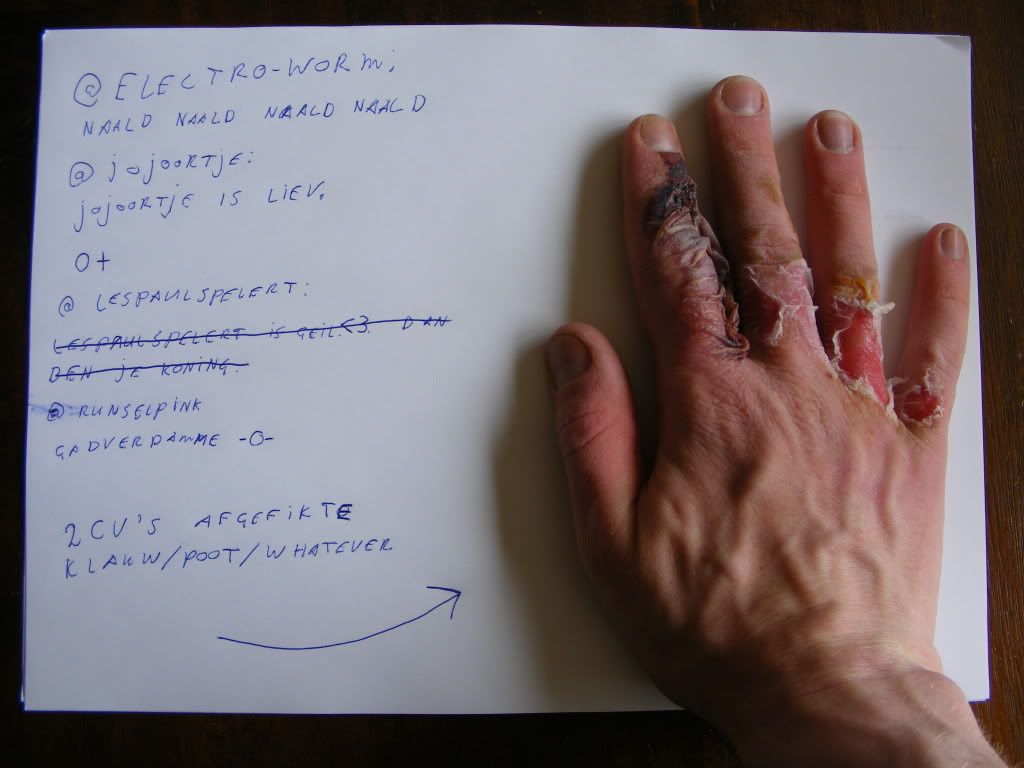 @ ELECTRO-WORM;
NAALD NAALD NAALD NAALD
@ jojoortje:
jojoortje IS LIEV.
O+
@ LESPAULSPELERT:
LESPAULSPELERT is GEIL.<3. DAN
BEN je KONING.
@ RUNSELPINK
GADVERDAMME -O-
2CV'S AFGEFIKTE
KLAUW/POOT/WHATEVER